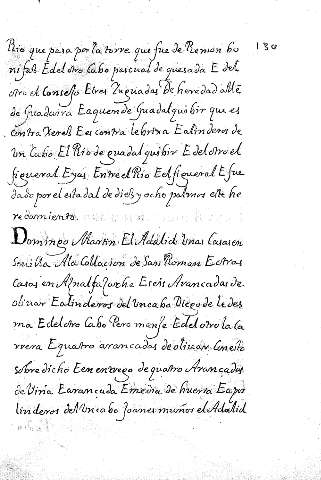 130
Rio que pasa por la torre que fue de Remon bo
nifas E del otro Cabo pascual de quesada E del
otra el Consejo Etres Yuguadas De heredad allē
de Guadaira E aquende Guadalquibir que es
contra Xerels E es contra lebrixa E a linderos de
Un Cabo El Rio de guadalquibir E del otro el
figueral E yas Entre el Rio E el figueral E fue
dado por el estadal de dies y ocho palmos este he
redamiento
Domingo Martin El Adalid Unas Casas en
Sevilla A la Collacion de San Roman E otras
Casas en Aznalfarache E seis Arancadas de
olivar E a linderos del un cabo Diego de ledes
ma E del otro Cabo Pero manse E del otro la Ca
rrera E quatro arancadas de olivar con esto
sobredicho E en entrego de quatro Arancadas
de Viña E arancada E media de huerta E a po
linderos del Un cabo Joanes muños el Adalid